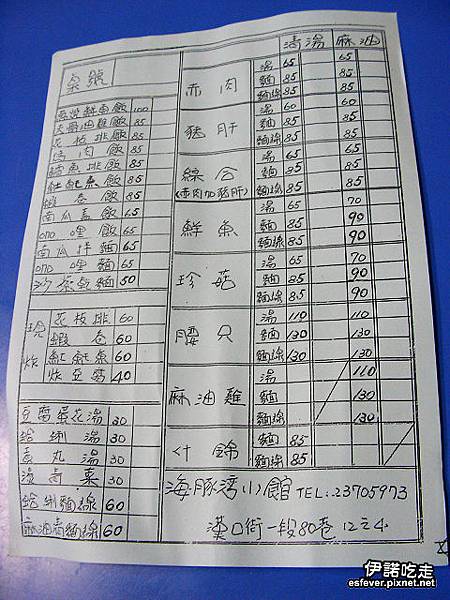 桌號
鮮魚飯 100
油雞飯 85
花枝排飯 85
肉飯 85
鱈魚排飯 85
紅魠魚飯 85
蝦卷飯 85
南瓜蓋飯 65
咖哩飯 65
南瓜拌麵 65
咖哩麵 65
沙茶乾麵 50
現炸
花枝排 60
蝦卷 60
紅魠魚 60
炸豆腐 40
豆腐蛋花湯 30
蛤蜊湯 30
魚丸湯 30
燙青菜 30
蛤蜊麵線 60
麻油麵線 60
清湯 麻油
赤肉 湯 65 65
麵 85 85
麵線 85 85
豬肝 湯 60 60
麵 85 85
麵線 85 85
綜合 (赤肉加豬肝) 湯 65 65
麵 85 85
麵線 85 85
鮮魚 湯 65 70
麵 85 90
麵線 85 90
珍菇 湯 65 70
麵 85 90
麵線 85 90
腰只 湯 110 110
麵 130 130
麵線 130 130
麻油雞 湯 110
麵 130
麵線 130
什錦 麵 85
麵線 85
海豚灣小館 TEL:23705973
漢口街一段80巷12之4
伊諾吃走
esfever.pixnet.net